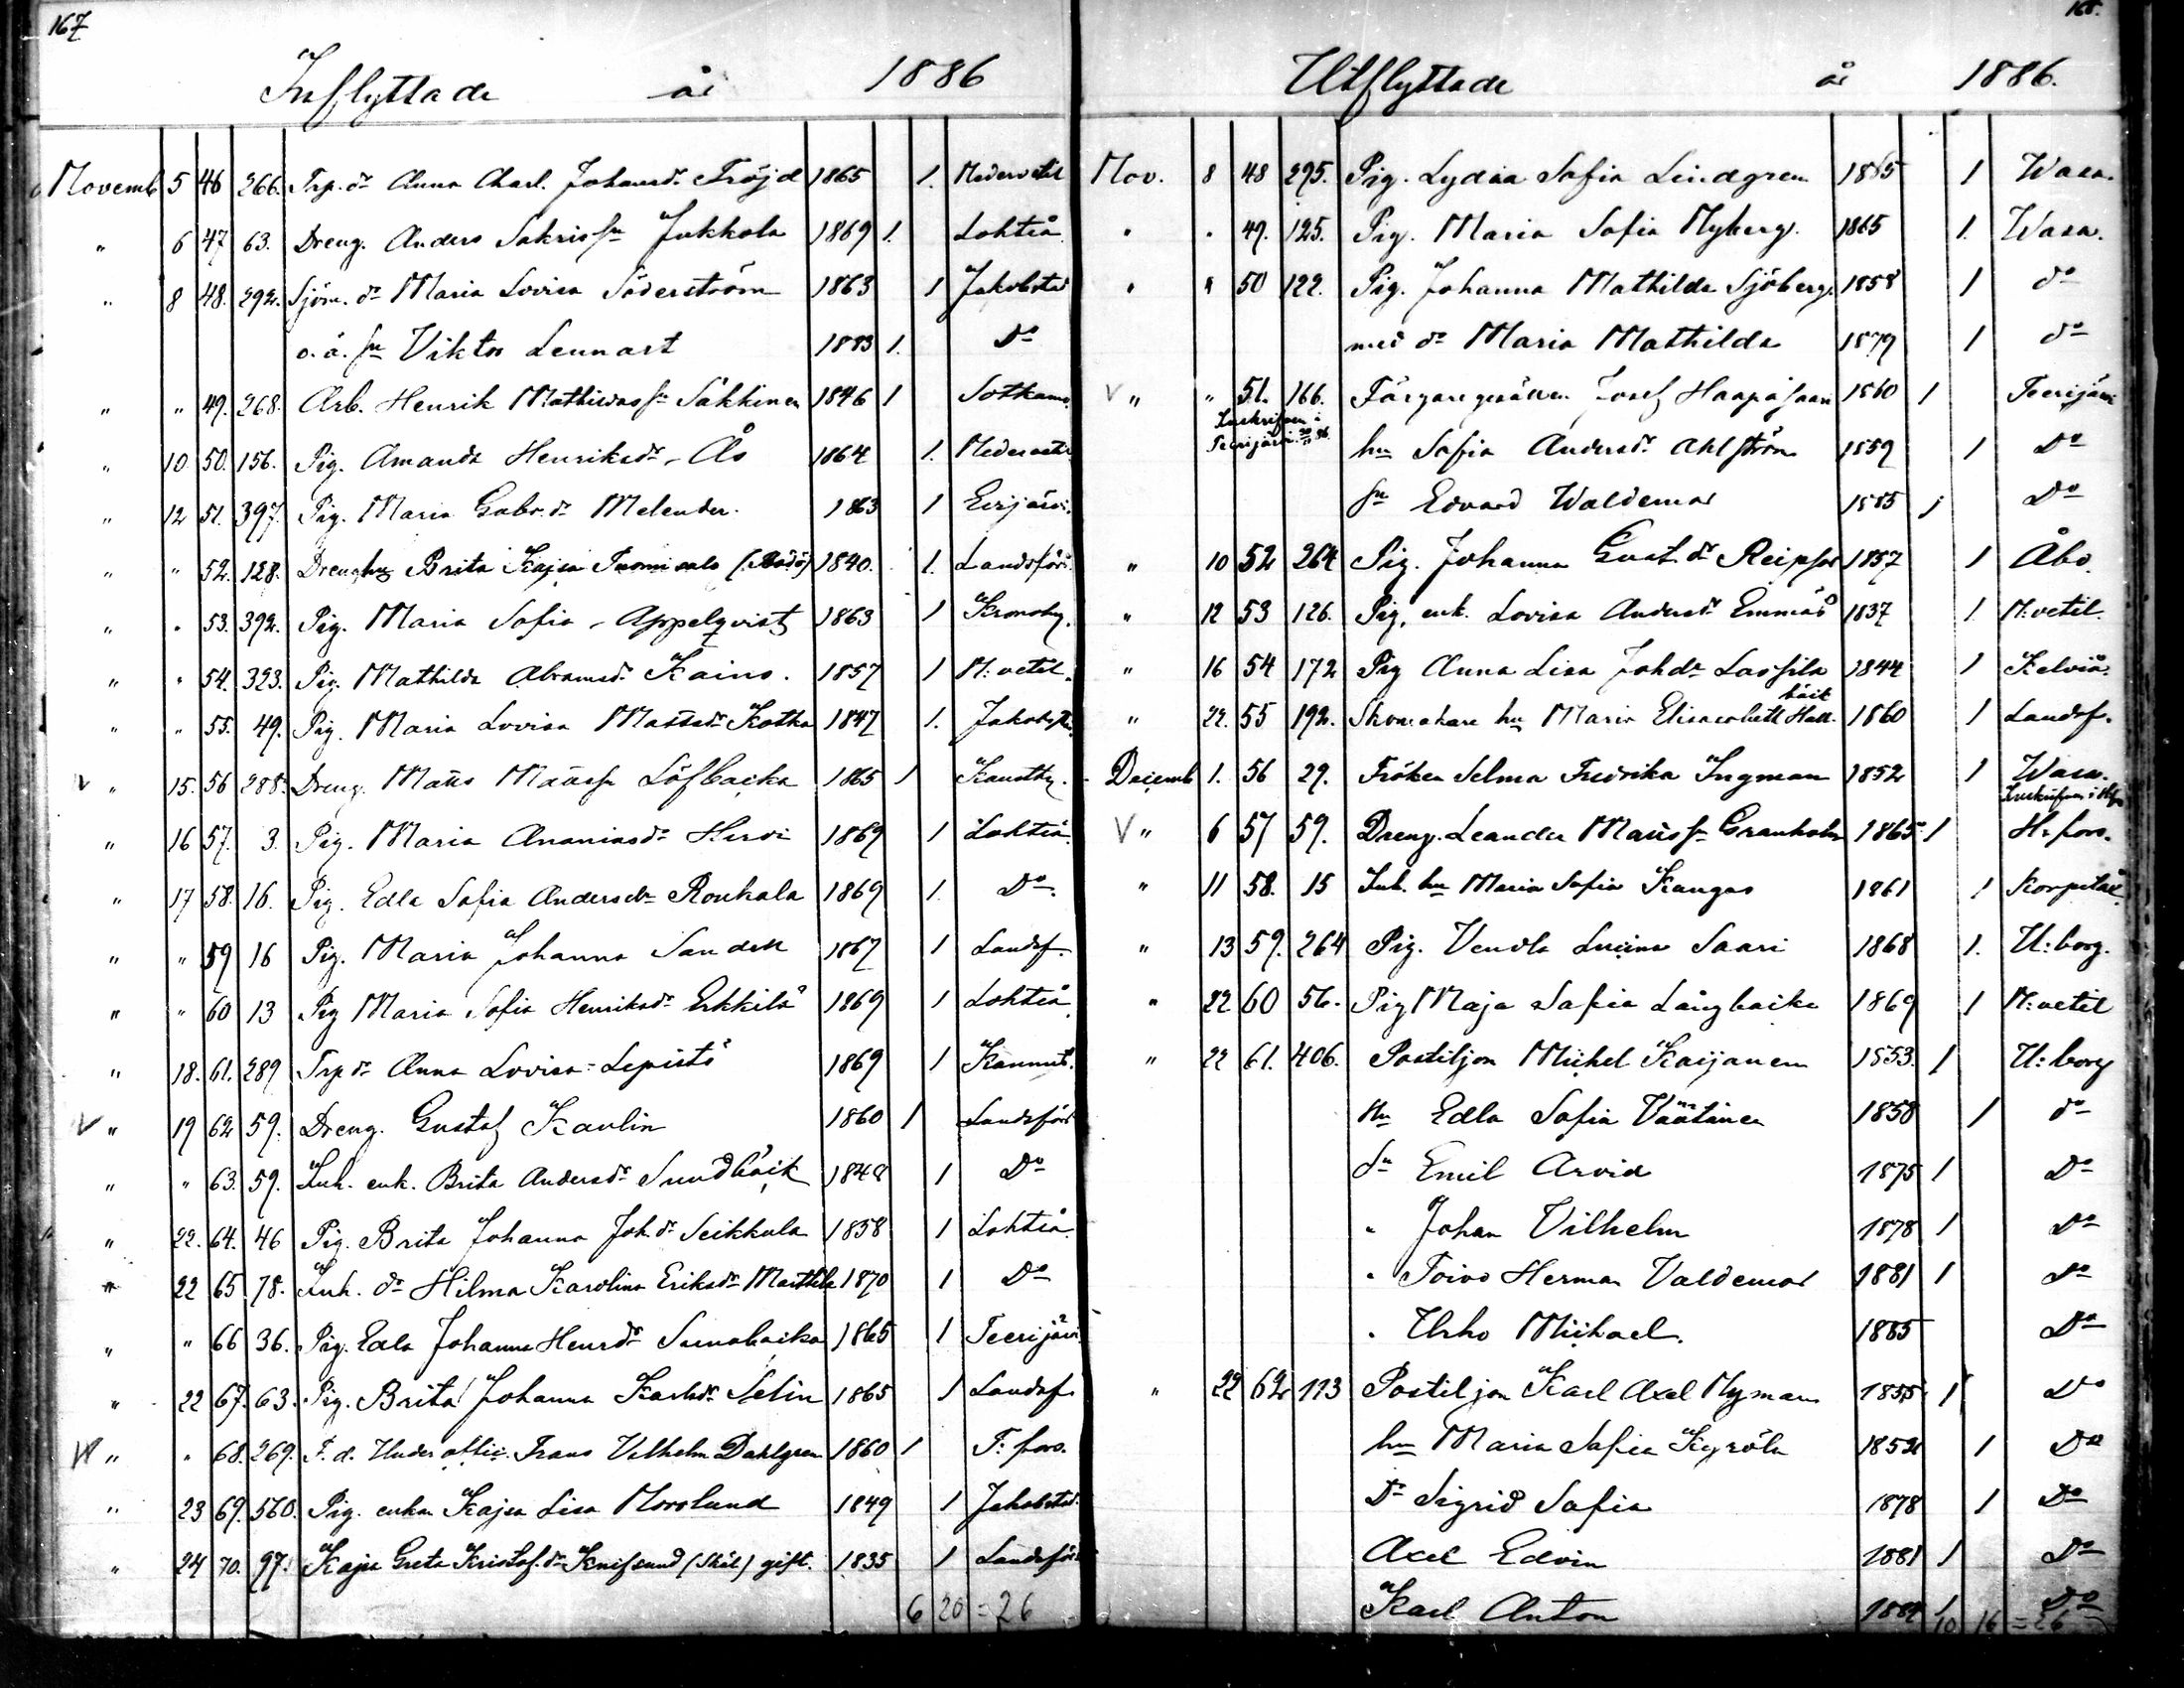 167
Inflyttade år 1886
Novemb 5 46 266. Trp. dr Anna Charl. Johansdr Fröjd 1865 1. Nedervetil
" 6 47 63. Dreng. Anders Sakrisson Jukkola 1869 1. Lohteå
" 8 48. 292. Sjöm. dr Maria Lovisa Söderström 1863 1 Jakobstad
o. ä. sn Viktor Lennart 1883 1. Do
" " 49. 268. Arb. Henrik Mathiasson Säkkinen 1846 1 Sotkamo
" 10 50. 156. Pig. Amanda Henriksdr Ås 1864 1. Nedervetil
" 12 51. 397. Pig. Maria Gabr.dr Melender. 1863 1 Evijärvi.
" " 52. 128. Drenghu Brita Kajsa Tuomisalo (Rådö) 1840. 1. Landsförs.
" " 53. 392. Pig. Maria Sofia Appelqvist 1863 1 Kronoby.
" " 54. 323. Pig. Mathilda Abramsdr Kaino. 1857 1 N:vetil.
" " 55. 49. Pig. Maria Lovisa Mattsdr Kotka 1847 1. Jakobst.
V " 15. 56 288. Dreng. Matts Mattsson Löfbacka 1865 1
" 16 57. 3. Pig. Maria Ananiasdr Hirvi 1869 1 Lohteå.
" 17 58. 16. Pig. Edla Sofia Andersdr Roukala 1869 1. Do.
" " 59 16 Pig. Maria Johanna Sandell 1867 1 Landsf.
" " 60 13 Pig Maria Sofia Henriksdr Erkkilä 1869 1 Lohteå
" 18. 61. 289 Trp dr Anna Lovisa Lepistö 1869 1 Kannus.
V " 19 62 59. Dreng. Gustaf Kaulin 1860 1 Landsförs
" " 63. 59. Inh. enk. Brita Andersdr Sundbäck 1848 1 Do
" 22. 64. 46 Pig. Brita Johanna Joh.dr Seikkula 1858 1 Lohteå.
" 22 65 78. Inh. dr Hilma Karolina Eriksdr Marttila 1870 1 Do
" " 66 36. Pig. Edla Johanna Henrdr Sunabacka 1865 1 Teerijärvi
" 22 67. 63. Pig. Brita Johanna Karlsdr Selin 1865 1 Landsf.
V " " 68. 269. F. d. Underoffic. Frans Vilhelm Dahlgren 1860 1 T:fors.
" 23 69. 560. Pig. enkan Kajsa Lisa Norrlund 1849 1 Jakobstad.
" 24 70. 97. Kajsa Greta Kristof.dr Knifsund (Skål) gift. 1835 1 Landsförs
6 20 = 26
168.
Utflyttade år 1886.
Nov. 8 48 295. Pig. Lydia Sofia Lindgren 1865 1 Wasa.
" " 49. 125. Pig. Maria Sofia Nyberg. 1865 1. Wasa.
" " 50 122. Pig. Johanna Mathilda Sjöberg. 1858 1 do
med dr Maria Mathilda 1879 1 do
V " " 51. 166. Färgaregesällen Josef Haapasaari 1860 1 Teerijärvi
Inskrifven i Teerijärvi 30/11 86.
hu Sofia Andersdr Ahlström 1859 1 Do
sn Edvard Waldemar 1885 1 Do
" 10 52 264 Pig. Johanna Gust.dr Reipsar 1857 1 Åbo
" 12 53 126. Pig. enk. Lovisa Andersdr Emmäs 1837 1. N:vetil.
" 16 54 172 Pig Anna Lisa Johdr Lassila 1844 1 Kelviå.
" 22. 55 192. Skomakare hu Maria Elisabeth Hallbäck 1860 1 Landsf.
Decemb 1. 56 29. Fröken Selma Fredrika Ingman 1852 1 Wasa.
Inskrifven i Hfrs
V " 6 57 59. Dreng. Leander Mattsson Granholm 1865. 1 H:fors.
" 11 58. 15 Inh. hu Maria Sofia Kangas 1861 1
" 13 59. 264 Pig. Vendla Lucina Saari 1868 1. U:borg.
" 22 60 56. Pig Maja Sofia Långbacka 1869 1 N:vetil
" 22 61. 406. Postiljon Mickel Kaijanen 1853. 1 U:borg
Hu Edla Sofia Väätänen 1858 1 do
Sn Emil Arvid 1875 1 Do
" Johan Vilhelm 1878 1 Do
" Toivo Herman Valdemar 1881 1 Do
" Urho Mickael. 1885 Do
" 22 62 113 Postiljon Karl Axel Nyman 1855 1 Do
hu Maria Sofia Kyrölä 1852 1 Do
Dr Sigrid Sofia 1878 1 Do
Axel Edvin 1881 1 Do
Karl Anton 1884 1 Do
10 16 = 26